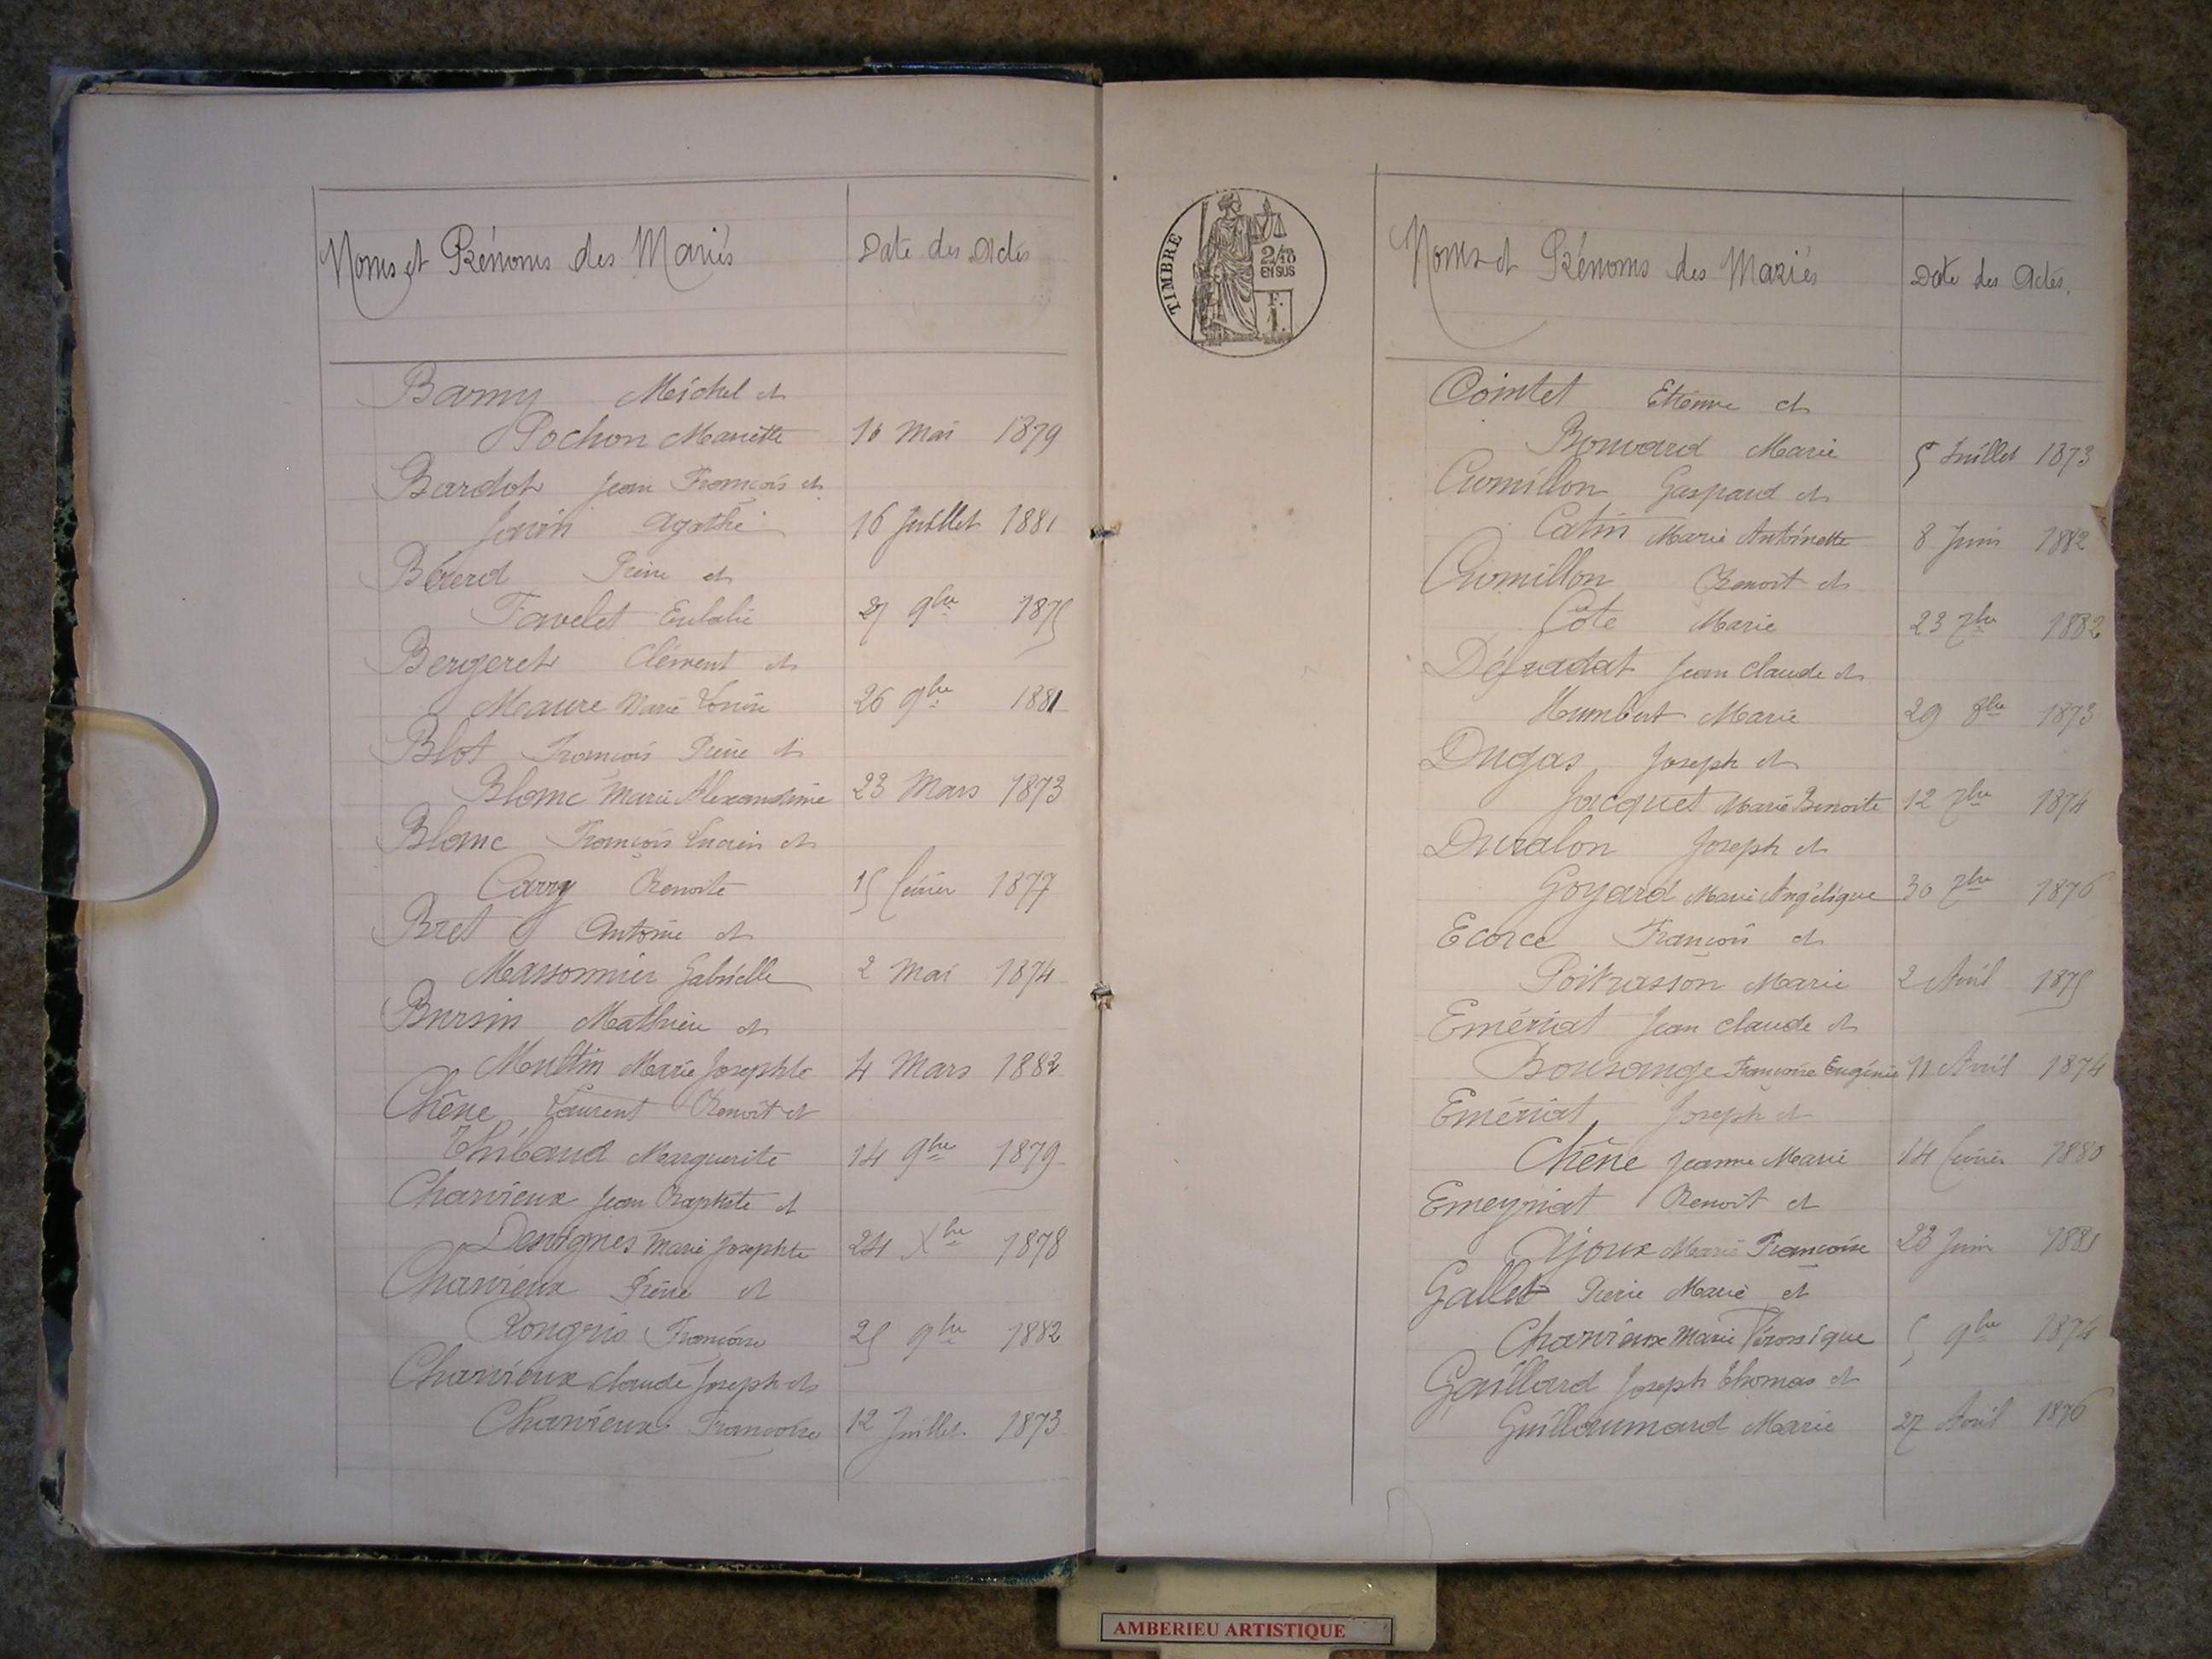 Noms et Prénoms des Mariés Date des Actes
Barny Michel et
Pochon Mariette 16 Mai 1879
Bardot Jean François et
Janin Agathe 16 Juillet 1881
Bérerd Pierre et
Favelet Eulalie 27 9bre 1875
Bergeret Clément et
Meaure Marie 26 9bre 1881
Blot François Pierre et
Blanc Marie Alexandrine 23 Mars 1873
Blanc François Lucien et
Carry Benoite 15 février 1877
Bret Antoine et
Massonnier Gabrielle 2 Mai 1874
Bursin Mathieu et
Multin Marie Josephte 4 Mars 1882
Chêne Laurent Benoit et
Thibaud Marguerite 14 9bre 1879
Charvieux Jean Baptiste et
Marie Josephte 24 Xbre 1878
Charvieux Pierre et
Françoise 25 9bre 1882
Charvieux Claude Joseph et
Charvieux Françoise 12 Juillet 1873
TIMBRE
2/10
EN SUS
F.
1.
Noms et Prénoms des Mariés Date des Actes.
Cointet Etienne et
Bonvard Marie 5 Juillet 1873
Cromillon Gaspard et
Catin Marie Antoinette 8 Juin 1882
Cromillon Benoit et
Côte Marie 23 7bre 1882
Défradat Jean Claude et
Humbert Marie 29 8bre 1873
Dugas Joseph et
Jacquet Marie Benoite 12 7bre 1874
Duralon Joseph et
Goyard Marie Angélique 30 7bre 1876
Ecorce François et
Poitrasson Marie 2 Avril 1875
Emériat Jean Claude et
Bousange Françoise Eugénie 11 Avril 1874
Emériat Joseph et
Chêne Jeanne Marie 14 février 1880
Emeyriat Benoit et
Ajoux Marie Françoise 23 Juin 1881
Gallet Pierre Marie et
Charvieux Marie Véronique 5 9bre 1874
Gaillard Joseph Thomas et
Guillaumard Marie 27 Avril 1876
AMBERIEU ARTISTIQUE